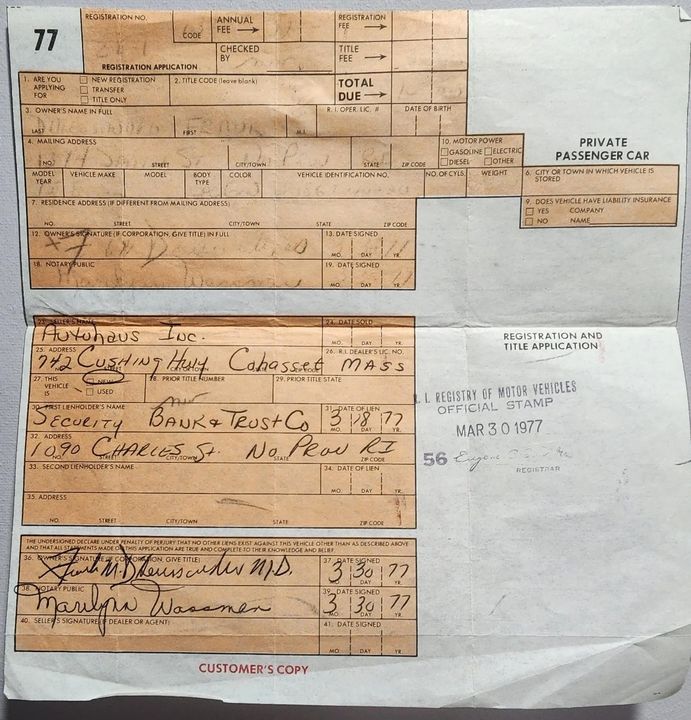 77
REGISTRATION NO.
CODE
ANNUAL FEE
REGISTRATION FEE
CHECKED BY
TITLE FEE
REGISTRATION APPLICATION
1. ARE YOU APPLYING FOR
NEW REGISTRATION
TRANSFER
TITLE ONLY
2. TITLE CODE (leave blank)
TOTAL DUE
3. OWNER'S NAME IN FULL
R.I. OPER. LIC. #
DATE OF BIRTH
LAST FIRST M.I.
4. MAILING ADDRESS
10. MOTOR POWER
GASOLINE ELECTRIC
DIESEL OTHER
NO. STREET CITY/TOWN STATE ZIP CODE
PRIVATE
PASSENGER CAR
MODEL YEAR VEHICLE MAKE MODEL BODY TYPE COLOR VEHICLE IDENTIFICATION NO. NO. OF CYLS. WEIGHT
6. CITY OR TOWN IN WHICH VEHICLE IS STORED
7. RESIDENCE ADDRESS (IF DIFFERENT FROM MAILING ADDRESS)
9. DOES VEHICLE HAVE LIABILITY INSURANCE
YES COMPANY
NO NAME
NO. STREET CITY/TOWN STATE ZIP CODE
12. OWNER'S SIGNATURE (IF CORPORATION, GIVE TITLE) IN FULL
13. DATE SIGNED
MO. DAY YR.
18. NOTARY PUBLIC
19. DATE SIGNED
Marilyn Wassmen
MO. DAY YR.
23. SELLER'S NAME
24. DATE SOLD
Autohaus Inc.
25. ADDRESS
26. R.I. DEALER'S LIC. NO.
742 Cushing Hwy Cohasset MASS
27. THIS VEHICLE IS
NEW
USED
28. PRIOR TITLE NUMBER
29. PRIOR TITLE STATE
REGISTRATION AND
TITLE APPLICATION
30. FIRST LIENHOLDER'S NAME
31. DATE OF LIEN
Security Bank & Trust Co 3 18 77
32. ADDRESS
1090 Charles St. No Prov RI
NO. STREET CITY/TOWN STATE ZIP CODE
R. I. REGISTRY OF MOTOR VEHICLES
OFFICIAL STAMP
MAR 30 1977
56
REGISTRAR
33. SECOND LIENHOLDER'S NAME
34. DATE OF LIEN
MO. DAY YR.
35. ADDRESS
NO. STREET CITY/TOWN STATE ZIP CODE
THE UNDERSIGNED DECLARE UNDER PENALTY OF PERJURY THAT NO OTHER LIENS EXIST AGAINST THIS VEHICLE OTHER THAN AS DESCRIBED ABOVE
AND THAT ALL STATEMENTS MADE ON THIS APPLICATION ARE TRUE AND COMPLETE TO THEIR KNOWLEDGE AND BELIEF
36. OWNER'S SIGNATURE (IF CORPORATION, GIVE TITLE)
37. DATE SIGNED
M.D.
3 30 77
MO. DAY YR.
38. NOTARY PUBLIC
39. DATE SIGNED
Marilyn Wassmen
3 30 77
MO. DAY YR.
40. SELLER'S SIGNATURE (IF DEALER OR AGENT)
41. DATE SIGNED
MO. DAY YR.
CUSTOMER'S COPY